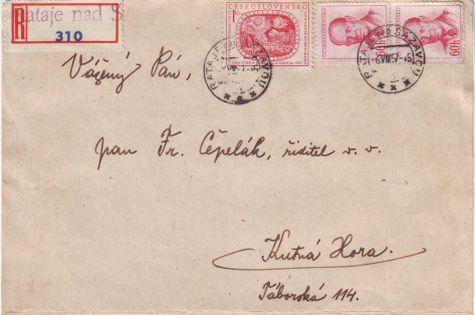 R
Rataje nad S
310
ČESKOSLOVENSKO
Vážený Pán,
pan Fr. Čepelák, řiditel v. v.
Kutná Hora.
Táborská 114.